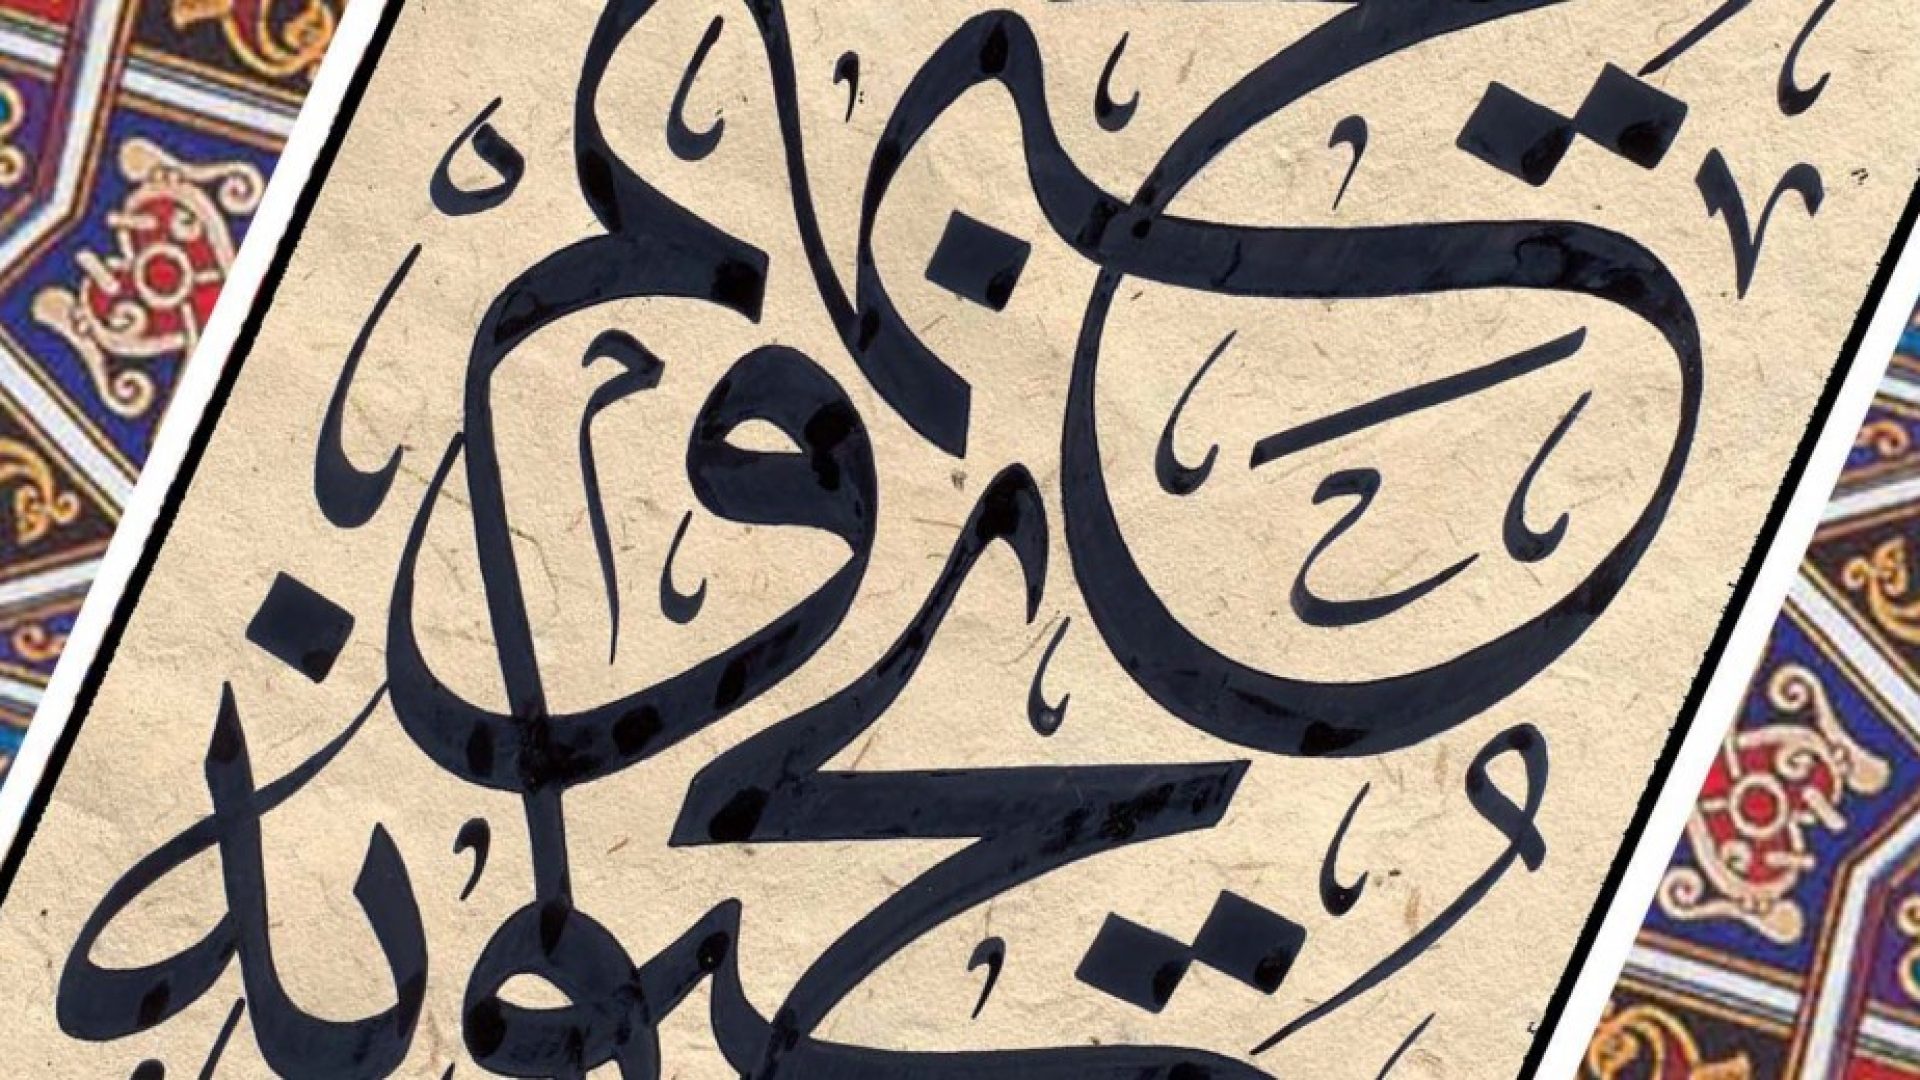 يحبهم و
يحبونه